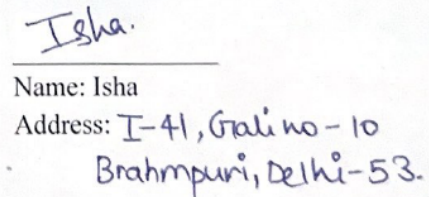 Isha.
Name: Isha
Address: I-41, Gali no-10
Brahmpuri, Delhi-53.